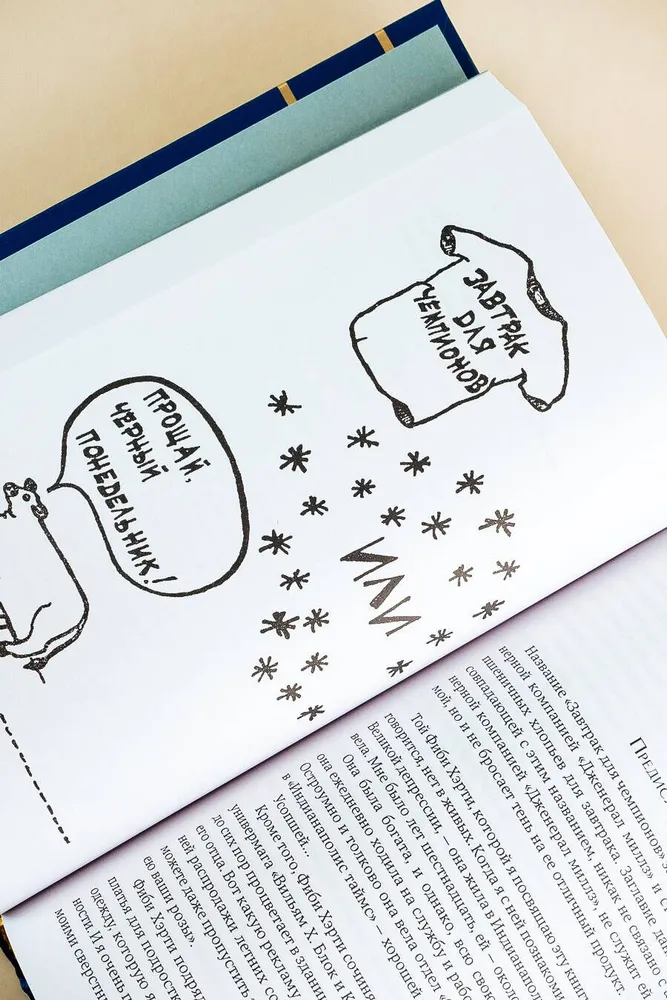 ЗАВТРАК
ДЛЯ
ЧЕМПИОНОВ
ИЛИ
ПРОЩАЙ,
ЧЕРНЫЙ
ПОНЕДЕЛЬНИК!
Название «Завтрак для чемпионов»
нерной компанией «Дженерал миллз» и с
пшеничных хлопьев для завтрака. Заглавие
совпадающей с этим названием, никак не связано
нерной компанией «Дженерал миллз», не служит ей
мой, но и не бросает тень на ее отличный продукт.
Той Фиби Хэрти, которой я посвящаю эту
говорится, нет в живых. Когда я с ней
Великой депрессии, – она жила в
вела. Мне было лет шестнадцать, ей – около
Она была богата, и, однако, всю
она ежедневно ходила на службу и
Остроумно и толково она вела отдел
в «Индианаполис таймс» – хорошей
Усопшей.
Кроме того, Фиби Хэрти
универмага «Вильям Х. Блок и К
до сих пор процветает в
его отца. Вот какую рекламу
ней распродажи летних
можете даже пропустить
ею ваши розы».
Фиби Хэрти
платы для
одежду, которую я
ности. И я очень
моими